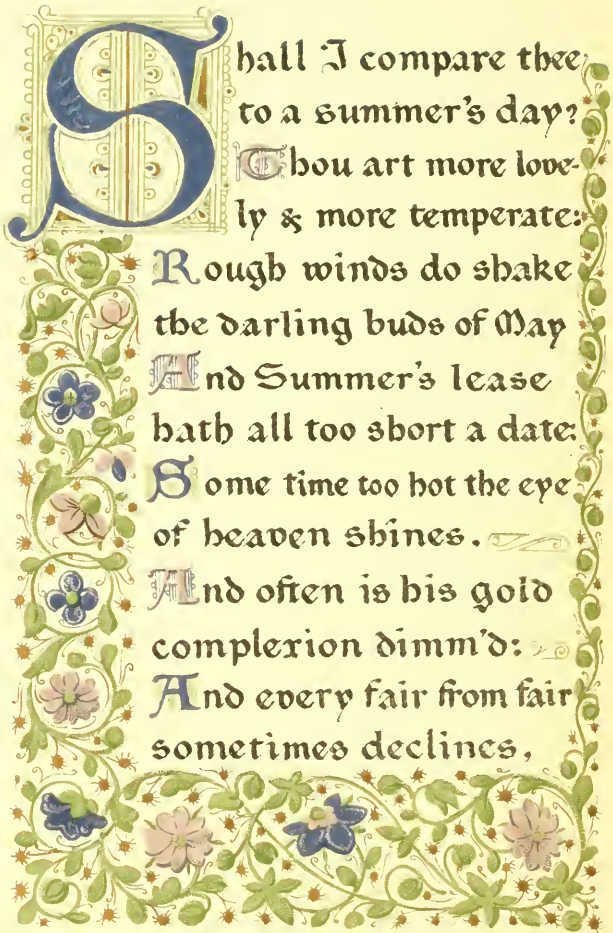 Shall I compare thee
to a summer's day?
Thou art more love-
ly & more temperate:
Rough winds do shake
the darling buds of May
And Summer's lease
hath all too short a date:
Some time too hot the eye
of heaven shines.
And often is his gold
complexion dimm'd:
And every fair from fair
sometimes declines,